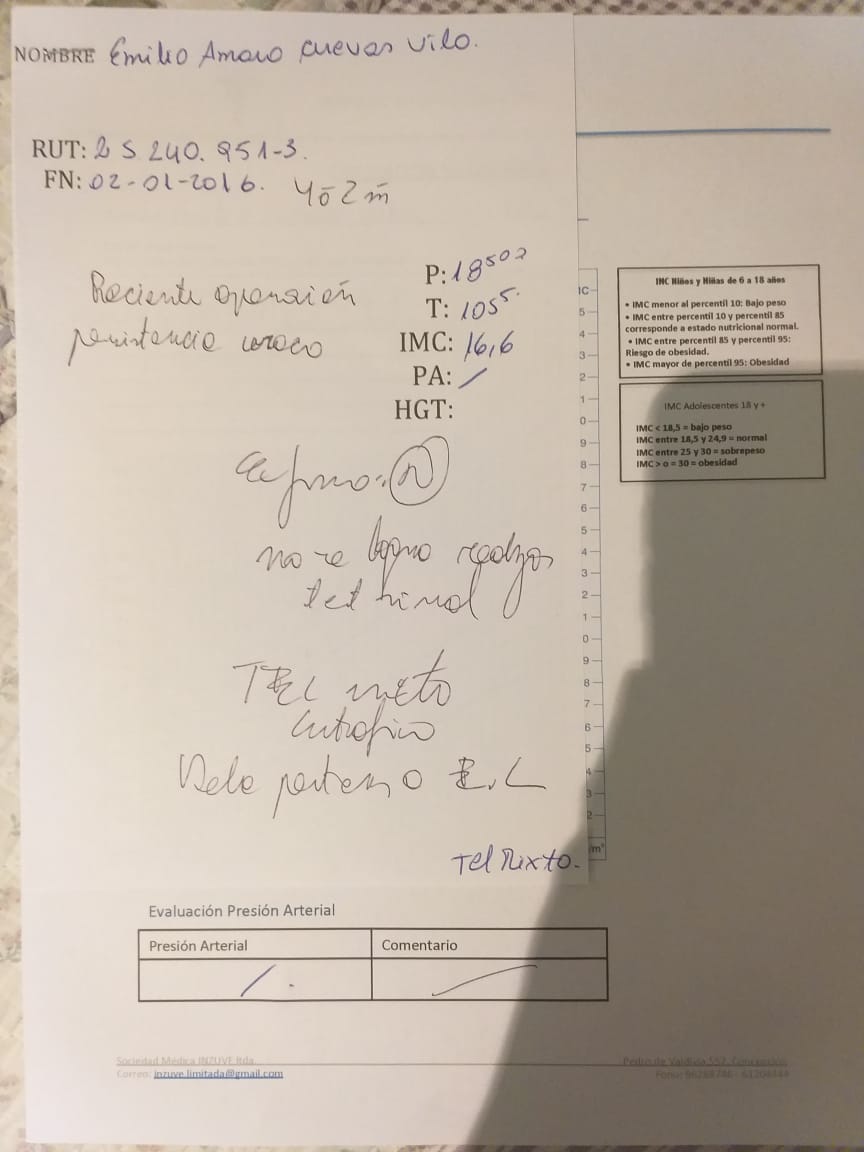 NOMBRE Emilio Amaro Cuevas Vilo.
RUT: 25 240. 951-3.
FN: 02-01-2016. 4ō 2m̄
Reciente operación
persistencia uraco
P: 18500
T: 105⁵.
IMC: 16,6
PA: /
HGT:
Ex físico: N
no se logra realizar
test
TEL mixto
Eutrófico
Debe
TEL Mixto.
IMC Niños y Niñas de 6 a 18 años
• IMC menor al percentil 10: Bajo peso
• IMC entre percentil 10 y percentil 85
corresponde a estado nutricional normal.
• IMC entre percentil 85 y percentil 95:
Riesgo de obesidad.
• IMC mayor de percentil 95: Obesidad
IMC Adolescentes 18 y +
IMC < 18,5 = bajo peso
IMC entre 18,5 y 24,9 = normal
IMC entre 25 y 30 = sobrepeso
IMC > o = 30 = obesidad
Evaluación Presión Arterial
Presión Arterial Comentario
Sociedad Médica INZUVE ltda. Pedro de Valdivia 552, Concepción
Correo: inzuve.limitada@gmail.com